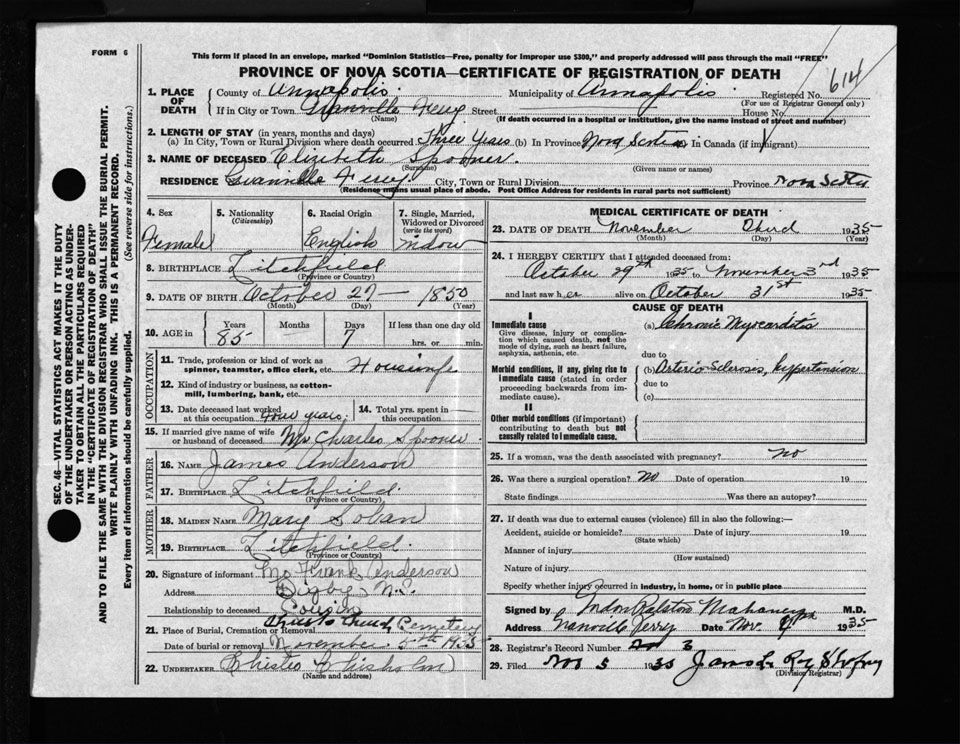 FORM 6
This form if placed in an envelope, marked "Dominion Statistics—Free, penalty for improper use $300," and properly addressed will pass through the mail "FREE"
PROVINCE OF NOVA SCOTIA—CERTIFICATE OF REGISTRATION OF DEATH
614
1. PLACE OF DEATH County of Annapolis Municipality of Annapolis Registered No.
(For use of Registrar General only)
If in City or Town Granville Ferry Street House No.
(Name) (If death occurred in a hospital or institution, give the name instead of street and number)
2. LENGTH OF STAY (in years, months and days)
(a) In City, Town or Rural Division where death occurred Three Years (b) In Province Nova Scotia In Canada (if immigrant)
3. NAME OF DECEASED Elizabeth Spooner.
(Surname) (Given name or names)
RESIDENCE Granville Ferry City, Town or Rural Division Province Nova Scotia
(Residence means usual place of abode. Post Office Address for residents in rural parts not sufficient)
SEC. 46—VITAL STATISTICS ACT MAKES IT THE DUTY
OF THE UNDERTAKER OR PERSON ACTING AS UNDER-
TAKER TO OBTAIN ALL THE PARTICULARS REQUIRED
IN THE "CERTIFICATE OF REGISTRATION OF DEATH"
AND TO FILE THE SAME WITH THE DIVISION REGISTRAR WHO SHALL ISSUE THE BURIAL PERMIT.
WRITE PLAINLY WITH UNFADING INK. THIS IS A PERMANENT RECORD.
Every item of information should be carefully supplied. (See reverse side for instructions.)
4. Sex 5. Nationality (Citizenship) 6. Racial Origin 7. Single, Married, Widowed or Divorced (write the word)
Female English widow
8. BIRTHPLACE Litchfield
(Province or Country)
9. DATE OF BIRTH October 27 — 1850
(Month) (Day) (Year)
10. AGE in Years Months Days If less than one day old
85 — 7 hrs. or min.
OCCUPATION
11. Trade, profession or kind of work as spinner, teamster, office clerk, etc. Housewife
12. Kind of industry or business, as cotton-mill, lumbering, bank, etc.
13. Date deceased last worked at this occupation four years. 14. Total yrs. spent in this occupation
15. If married give name of wife or husband of deceased Mr Charles Spooner.
FATHER
16. NAME James Anderson
17. BIRTHPLACE Litchfield.
(Province or Country)
MOTHER
18. MAIDEN NAME Mary
19. BIRTHPLACE Litchfield.
(Province or Country)
20. Signature of informant Frank Anderson
Address Digby N.S.
Relationship to deceased Cousin
21. Place of Burial, Cremation or Removal Christ Church Cemetery
Date of burial or removal November 5th 1935
22. UNDERTAKER Chisholm)
(Name and address)
MEDICAL CERTIFICATE OF DEATH
23. DATE OF DEATH November Third 1935
(Month) (Day) (Year)
24. I HEREBY CERTIFY that I attended deceased from:
October 29th 1935 to November 3rd 1935
and last saw her alive on October 31st 1935
CAUSE OF DEATH
I
Immediate cause
Give disease, injury or complication which caused death, not the mode of dying, such as heart failure, asphyxia, asthenia, etc.
(a) Chronic Myocarditis
due to
Morbid conditions, if any, giving rise to immediate cause (stated in order proceeding backwards from immediate cause).
(b) Arterio Scleroses, hypertension
due to
(c)
II
Other morbid conditions (if important) contributing to death but not causally related to immediate cause.
25. If a woman, was the death associated with pregnancy? no
26. Was there a surgical operation? No Date of operation 19
State findings Was there an autopsy?
27. If death was due to external causes (violence) fill in also the following:—
Accident, suicide or homicide? Date of injury 19
(State which)
Manner of injury
(How sustained)
Nature of injury
Specify whether injury occurred in industry, in home, or in public place
Signed by Ralston Mahaney M.D.
Address Granville Ferry Date Nov. 1935
28. Registrar's Record Number 3
29. Filed Nov 5 1935
(Division Registrar)